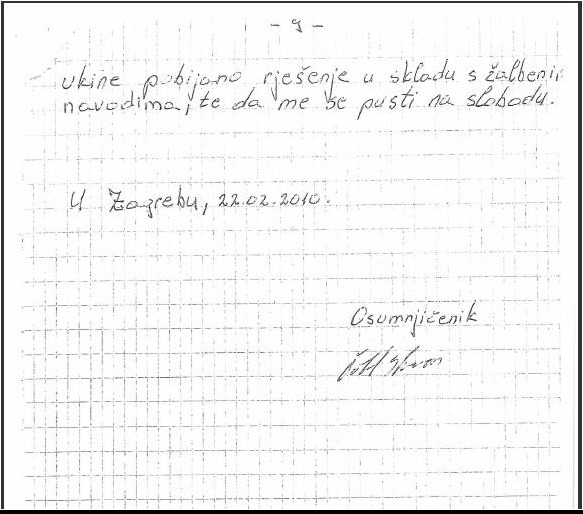 - 9 -
ukine pobijano rješenje u skladu s žalbenim
navodima, te da me se pusti na slobodu.
U Zagrebu, 22.02.2010.
Osumnjičenik